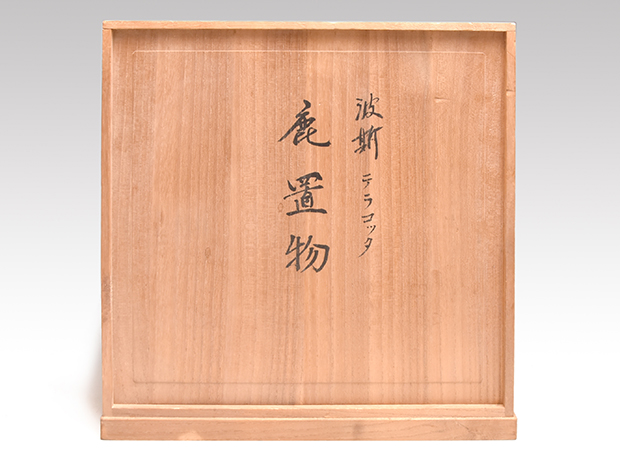 波斯 テラコッタ
鹿置物